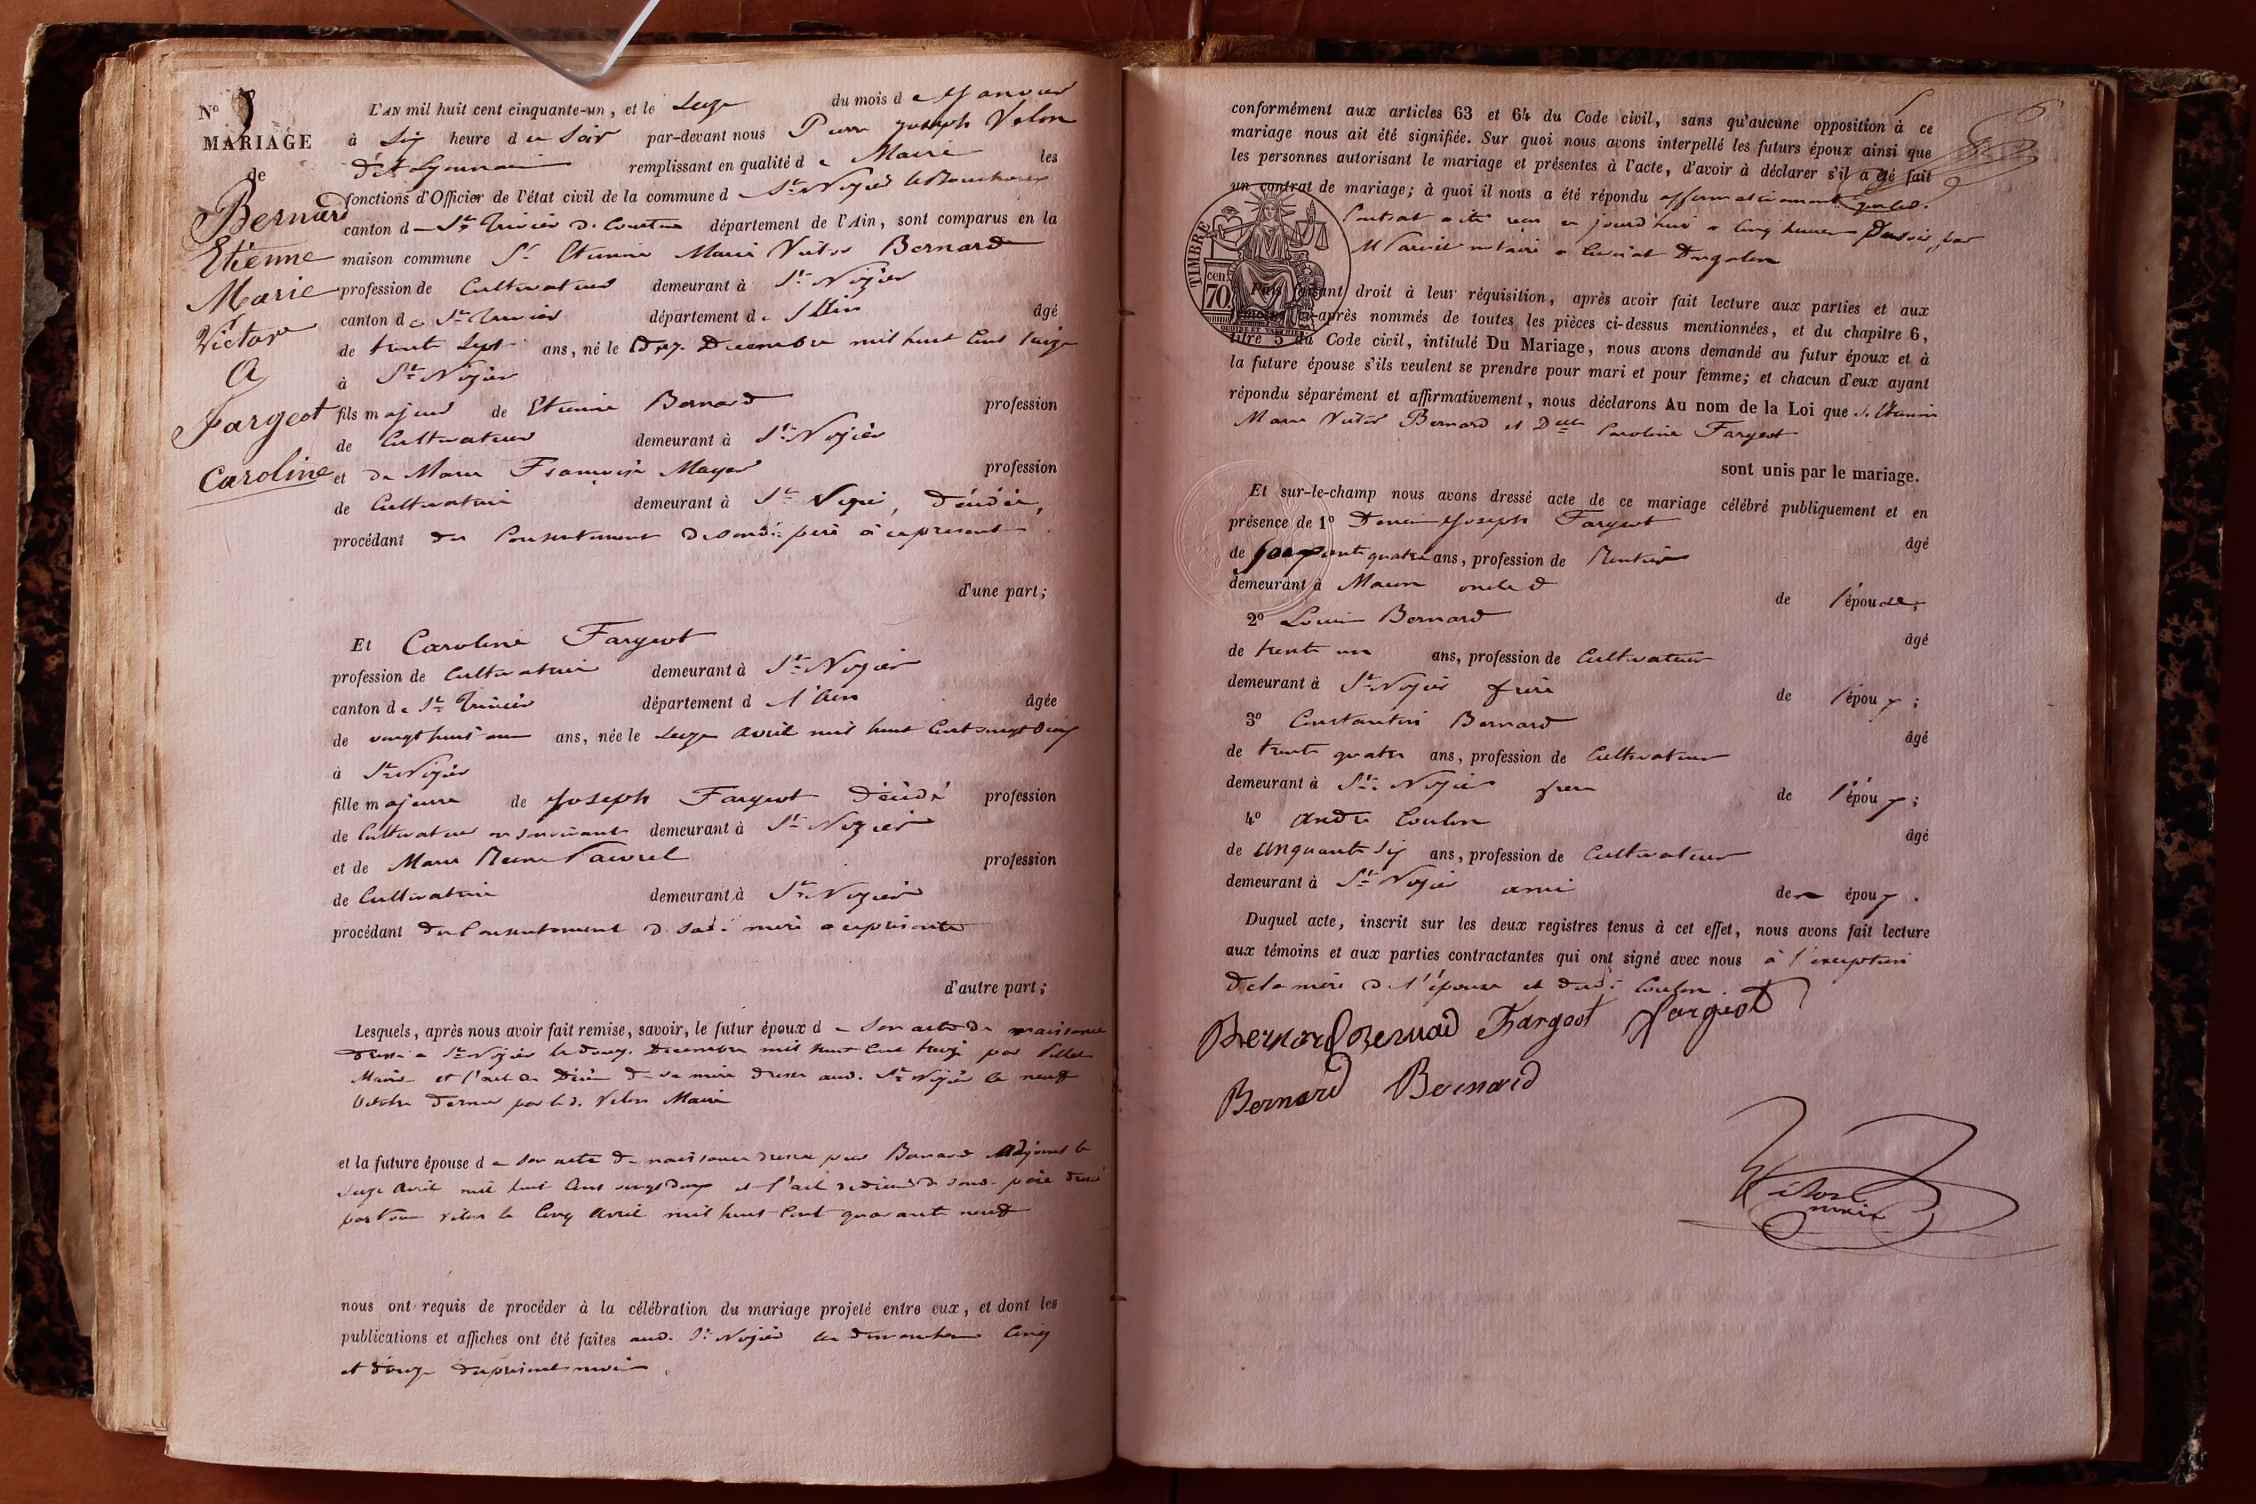 No
MARIAGE
de
Bernard
Etienne
Marie
Victor
a
Fargeot
Caroline
L'AN mil huit cent cinquante-un, et le seize du mois de Janvier
à six heure du Soir par-devant nous Pierre Joseph Velon
remplissant en qualité de Maire les
fonctions d'Officier de l'état civil de la commune d
canton de St Trivier de Courtes département de l'Ain, sont comparus en la
maison commune Sr Etienne Marie Victor Bernard
profession de Cultivateur demeurant à St Nizier
canton de St Trivier département de l'Ain âgé
de trente sept ans, né le Decembre mil huit cent treize
à St Nizier
fils majeur de Etienne Bernard profession
de Cultivateur demeurant à St Nizier
et de Marie Françoise Mayer profession
de Cultivatrice demeurant à St Nizier, Décédée,
procédant du Consentement de sondi père à ce présent
d'une part;
Et Caroline Fargeot
profession de Cultivatrice demeurant à St Nizier
canton de St Trivier département d l'Ain âgée
de vingt huit ans, née le seize avril mil huit Cent vingt deux
à St Nizier
fille majeure de Joseph Fargeot Décédé profession
de Cultivateur en son vivant demeurant à St Nizier
et de Marie Reine profession
de Cultivatrice demeurant à St Nizier
procédant du Consentement de sadi mère a ce présente
d'autre part;
Lesquels, après nous avoir fait remise, savoir, le futur époux de son acte de naissance
dressé a St Nizier le douze Decembre mil huit Cent treize par
Maire et l'acte de Décès de sa mère dressé aud. St Nizier le neuf
Octobre dernier par led. Velon Maire
et la future épouse de son acte de naissance dressé par Bernard Adjoint le
seize Avril mil huit Cent vingt deux et l'acte de décès de sond. père dressé
par nous Velon le Cinq Avril mil huit Cent quarante neuf
nous ont requis de procéder à la célébration du mariage projeté entre eux, et dont les
publications et affiches ont été faites aud. St Nizier les dimanches Cinq
et douze du présent mois.
conformément aux articles 63 et 64 du Code civil, sans qu'aucune opposition à ce
mariage nous ait été signifiée. Sur quoi nous avons interpellé les futurs époux ainsi que
les personnes autorisant le mariage et présentes à l'acte, d'avoir à déclarer s'il a été fait
un contrat de mariage; à quoi il nous a été répondu affirmativement que led.
Contrat a été reçu ce jourd'hui a Cinq heures du soir, par
notaire a
TIMBRE
cen. 70
Puis faisant droit à leur réquisition, après avoir fait lecture aux parties et aux
témoins ci-après nommés de toutes les pièces ci-dessus mentionnées, et du chapitre 6,
titre 5 du Code civil, intitulé Du Mariage, nous avons demandé au futur époux et à
la future épouse s'ils veulent se prendre pour mari et pour femme; et chacun d'eux ayant
répondu séparément et affirmativement, nous déclarons Au nom de la Loi que S. Etienne
Marie Victor Bernard et Delle Caroline Fargeot
sont unis par le mariage.
Et sur-le-champ nous avons dressé acte de ce mariage célébré publiquement et en
présence de 1o Joseph Fargeot âgé
de soixante quatre ans, profession de Rentier
demeurant à Macon oncle d de l'épouse;
2o Louis Bernard âgé
de trente un ans, profession de Cultivateur
demeurant à St Nizier frère de l'époux;
3o Constantin Bernard âgé
de trente quatre ans, profession de Cultivateur
demeurant à St Nizier frère de l'époux;
4o André Coulon âgé
de Cinquante six ans, profession de Cultivateur
demeurant à St Nizier ami de époux.
Duquel acte, inscrit sur les deux registres tenus à cet effet, nous avons fait lecture
aux témoins et aux parties contractantes qui ont signé avec nous à l'exception
de la mère de l'épouse et dudi Coulon.
Bernard Bernard Fargeot Fargeot
Bernard Bernard
Velon
maire